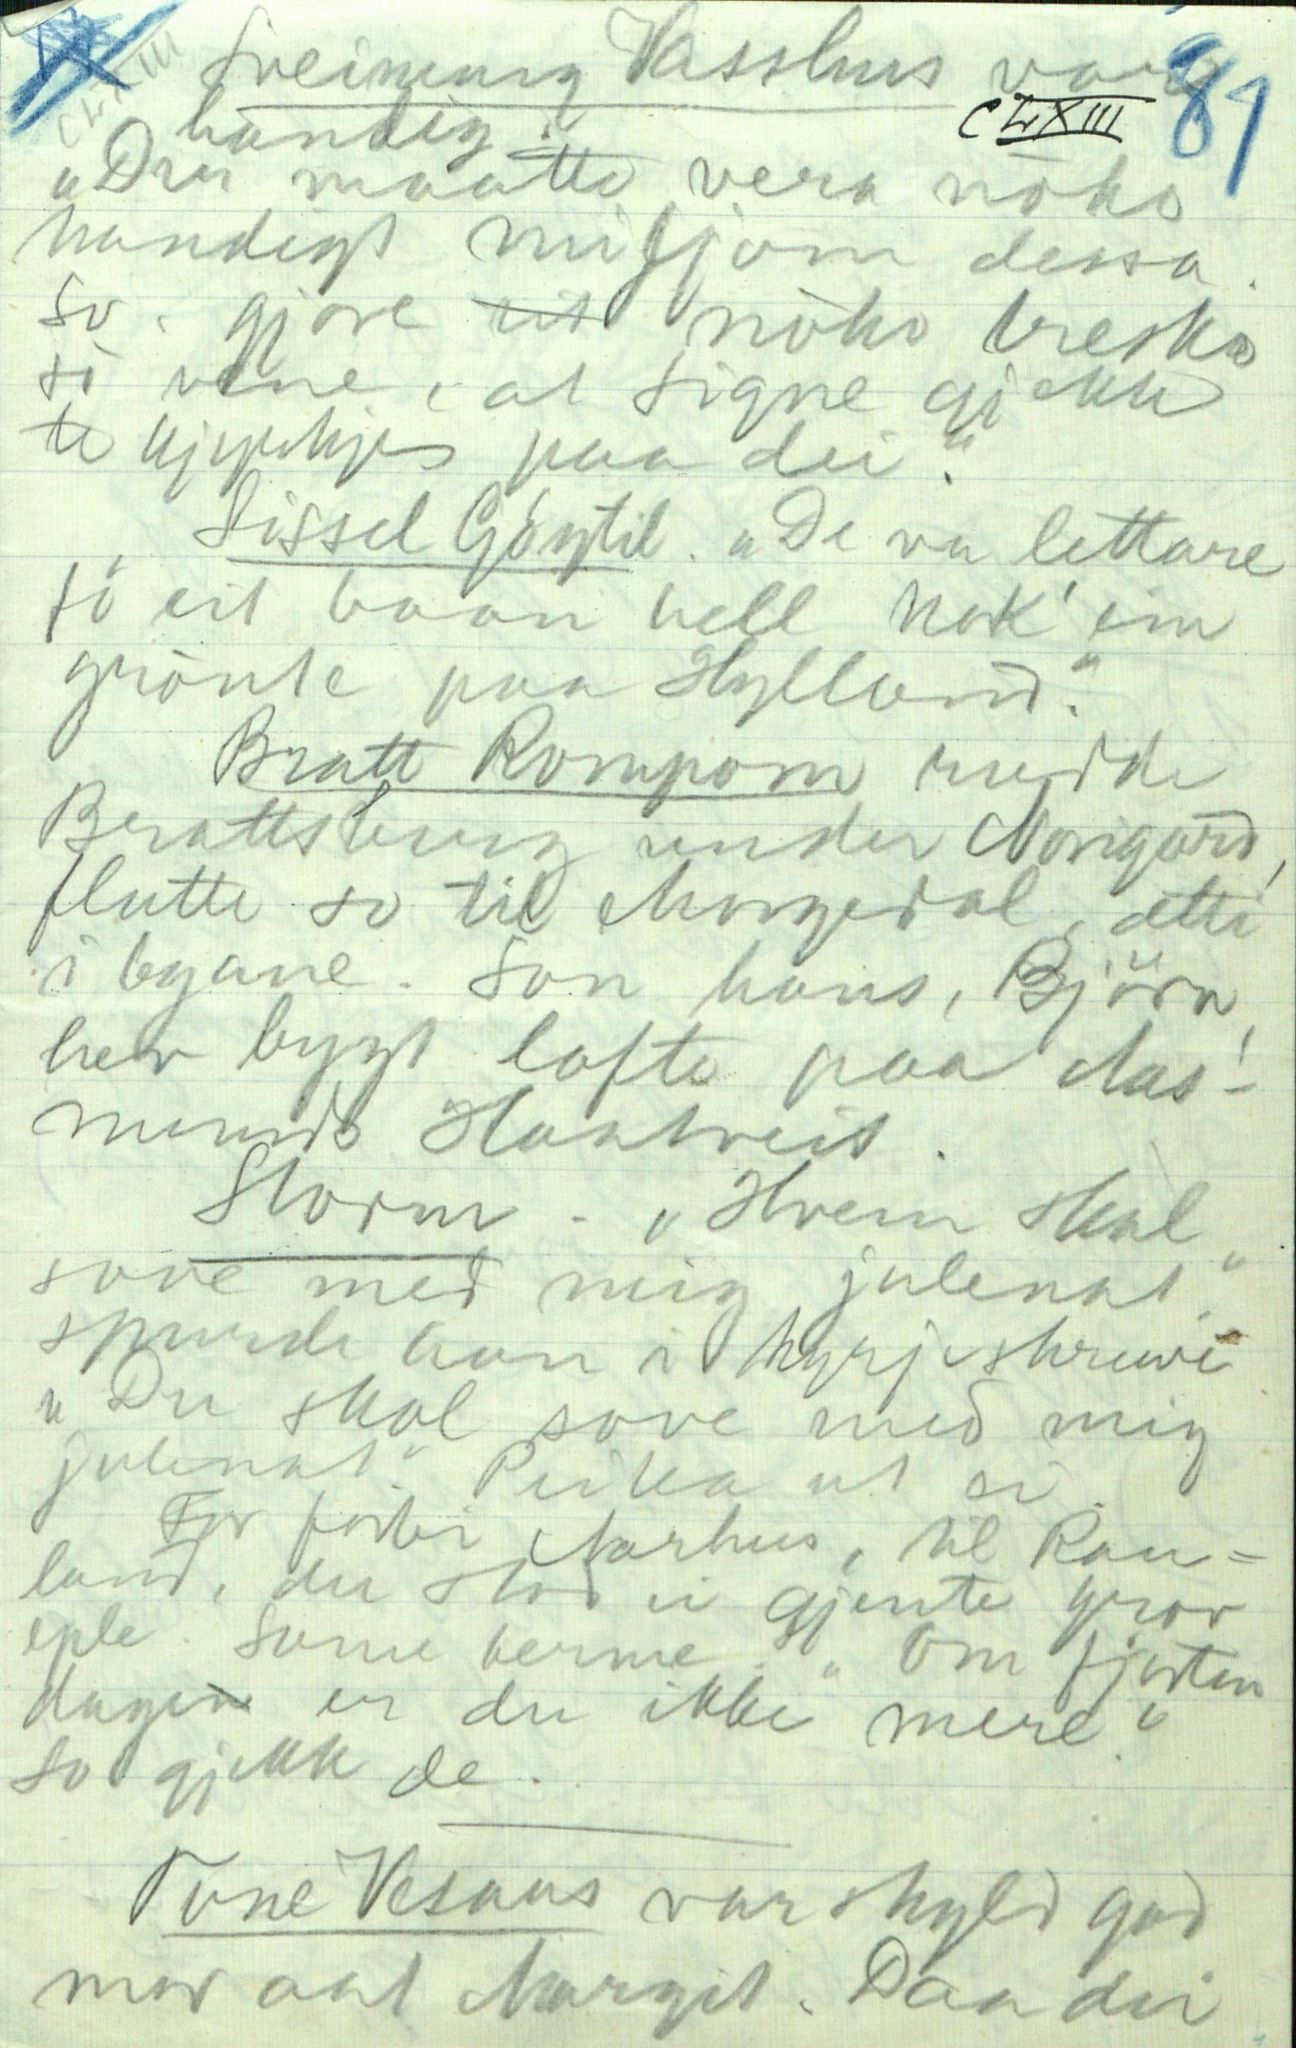 Sveinung Vasshus var
CLXIII 81
händig.
"Du maatte vera nöko
handigt milljom dessa.
So. gjore nöko breska
sö vene, at Signe gjekk
te kjyrkjes paa dei."
Sissel Göytil. "De va lettare
fö eit baan hell kok' ein
gröute paa Hylland."
Bratt Rompom rudde
Brattsberg under Norigard,
flutte so til Morgedal, atti
i byane. Son hans, Björn,
hev bygt lofte paa Aas-
munds Haatveit.
Storm. "Hvem skal
sove med mig julenat"
spurde han i kyrjestreivi
"Du skal sove med mig
julenat." Peika ut ei
For forbi Aarhus, til Rau=
land, der stod ei gjente grov
eple. Same berme. "Om fjorten
dager er du ikke mere."
So gjekk de.
Tone Vesaas var skyld god
mor aat Margit. Daa dei